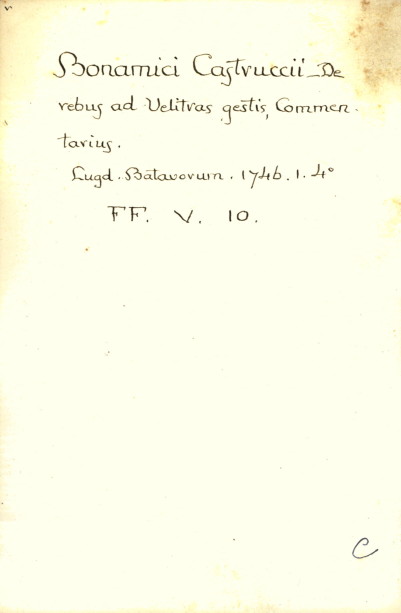 Bonamici Castruccii - De
rebus ad Velitras gestis, Commen-
tarius.
Lugd. Batavorum. 1746. 1. 4°
FF. V. 10.
C